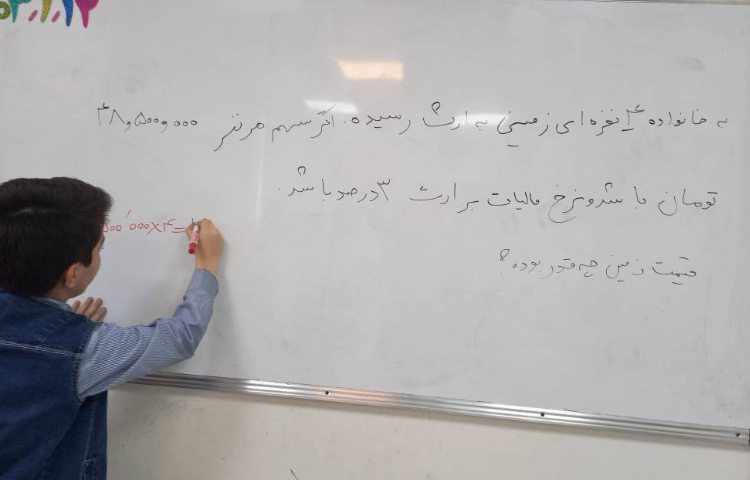 ۰۳,۱,۱۲
به خانواده ۴ نفره ای زمینی به ارث رسیده. اگر سهم هر نفر ۴۸,۵۰۰,۰۰۰
تومان باشد و نرخ مالیات بر ارث ۳ درصد باشد.
قیمت زمین چه قدر بوده؟
۵۰۰٬۰۰۰×۴=۱